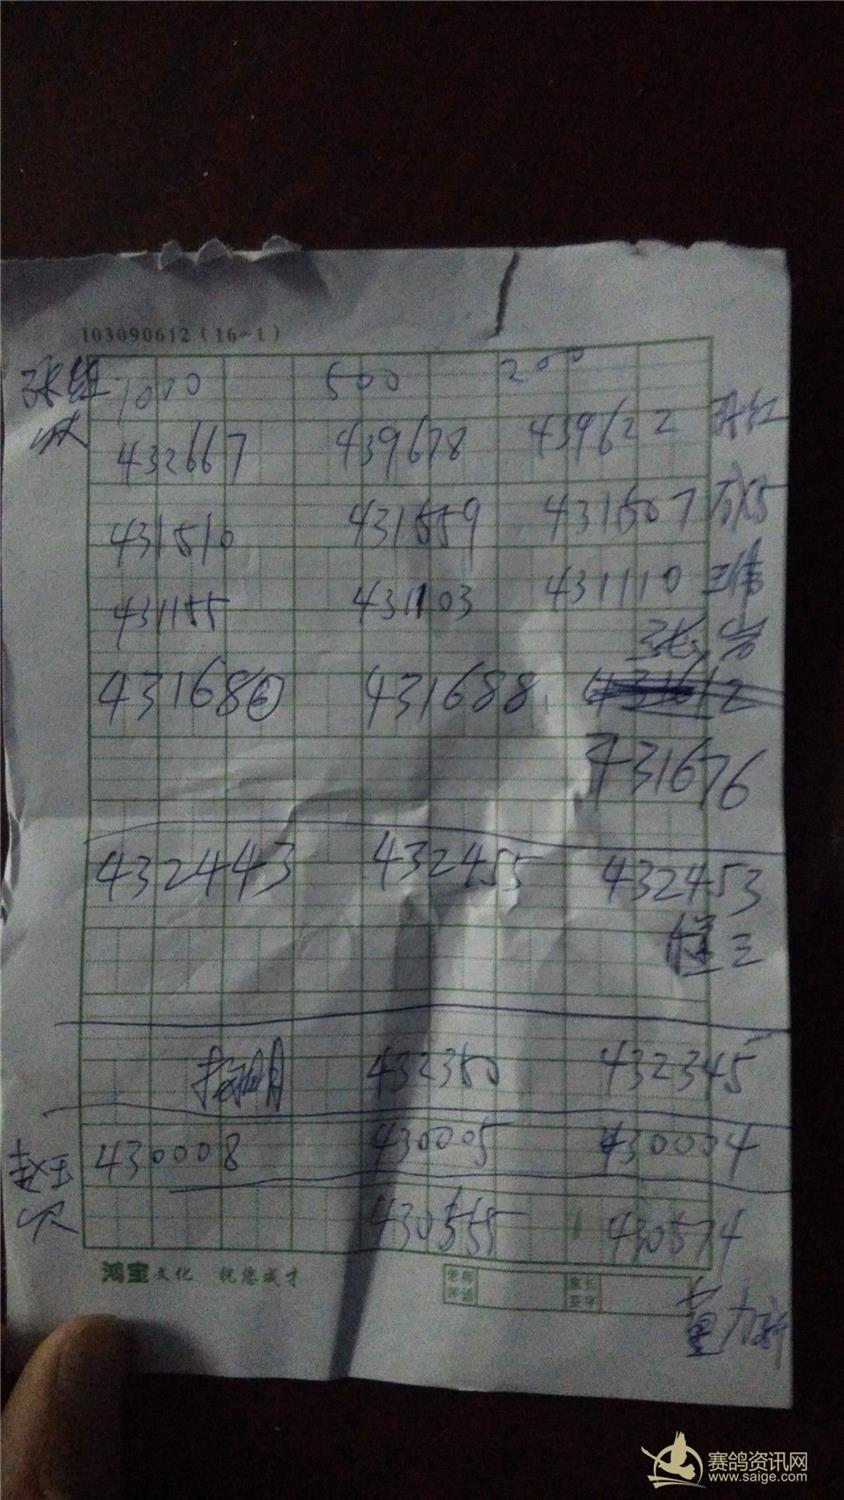 103090612(16-1)
1000 500 200
432667 439678 439622
431510 431559 431507
431155 431103 431110 王伟
431686 431688
431676
432443 432455 432453
432350 432345
赵玉 430008 430005 430004
430555 430574
鸿宝文化 祝您成才
老师评语 家长签字
董力新
赛鸽资讯网
www.saige.com